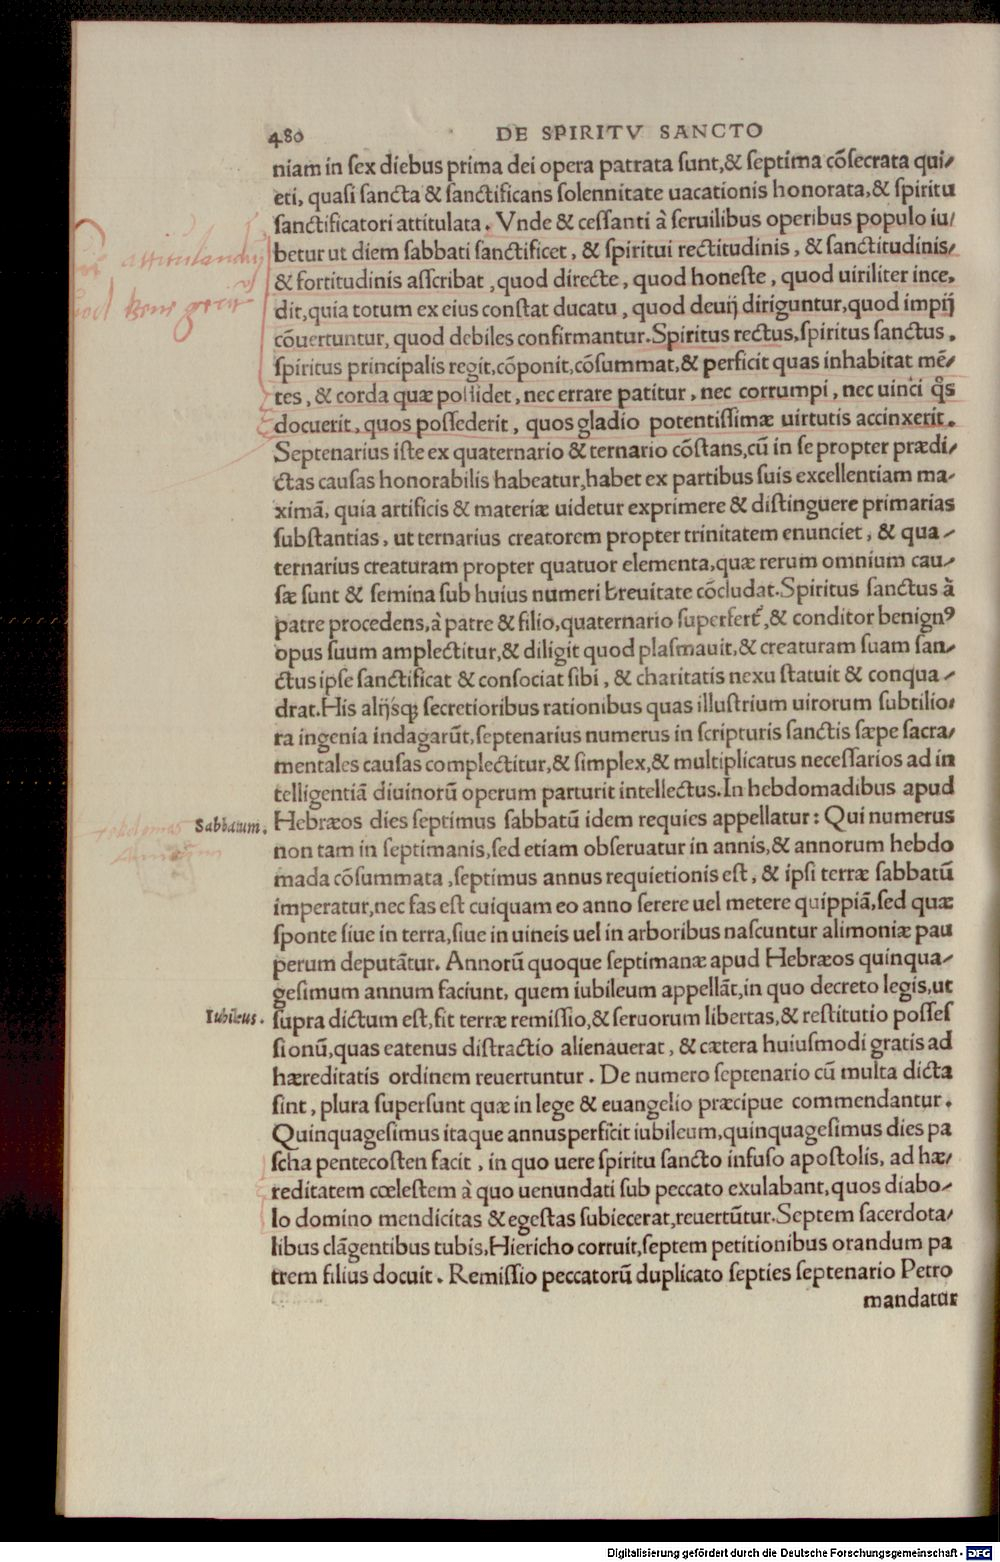 480 DE SPIRITV SANCTO
niam in ſex diebus prima dei opera patrata ſunt,& ſeptima cõſecrata qui/
eti, quaſi ſancta & ſanctificans ſolennitate uacationis honorata,& ſpiritu
ſanctificatori attitulata. Vnde & ceſſanti à ſeruilibus operibus populo iu/
betur ut diem ſabbati ſanctificet, & ſpiritui rectitudinis, & ſanctitudinis/
& fortitudinis aſſcribat, quod directe, quod honeſte, quod uiriliter ince/
dit, quia totum ex eius conſtat ducatu, quod deuij diriguntur, quod impij
cõuertuntur, quod debiles confirmantur. Spiritus rectus, ſpiritus ſanctus,
ſpiritus principalis regit, cõponit, cõſummat,& perficit quas inhabitat mẽ/
tes, & corda quæ poſſidet, nec errare patitur, nec corrumpi, nec uinci q̊s
docuerit, quos poſſederit, quos gladio potentiſſimæ uirtutis accinxerit.
Septenarius iſte ex quaternario & ternario cõſtans, cũ in ſe propter prædi/
ctas cauſas honorabilis habeatur, habet ex partibus ſuis excellentiam ma/
ximã, quia artificis & materiæ uidetur exprimere & diſtinguere primarias
ſubſtantias, ut ternarius creatorem propter trinitatem enunciet, & qua/
ternarius creaturam propter quatuor elementa, quæ rerum omnium cau/
ſæ ſunt & ſemina ſub huius numeri breuitate cõcludat. Spiritus ſanctus à
patre procedens, à patre & filio, quaternario ſuperfert᷑,& conditor benignꝰ
opus ſuum amplectitur,& diligit quod plaſmauit,& creaturam ſuam ſan/
ctus ipſe ſanctificat & conſociat ſibi, & charitatis nexu ſtatuit & conqua/
drat. His alijſq; ſecretioribus rationibus quas illuſtrium uirorum ſubtilio/
ra ingenia indagarũt, ſeptenarius numerus in ſcripturis ſanctis ſæpe ſacra/
mentales cauſas complectitur,& ſimplex,& multiplicatus neceſſarios ad in
telligentiã diuinorũ operum parturit intellectus. In hebdomadibus apud
Sabbatum. Hebræos dies ſeptimus ſabbatũ idem requies appellatur: Qui numerus
non tam in ſeptimanis, ſed etiam obſeruatur in annis,& annorum hebdo
mada cõſummata, ſeptimus annus requietionis eſt, & ipſi terræ ſabbatũ
imperatur, nec fas eſt cuiquam eo anno ſerere uel metere quippiã, ſed quæ
ſponte ſiue in terra, ſiue in uineis uel in arboribus naſcuntur alimoniæ pau
perum deputãtur. Annorũ quoque ſeptimanæ apud Hebræos quinqua/
geſimum annum faciunt, quem iubileum appellãt, in quo decreto legis, ut
Iubileus. ſupra dictum eſt, fit terræ remiſſio,& ſeruorum libertas,& reſtitutio poſſeſ
ſionũ, quas eatenus diſtractio alienauerat, & cætera huiuſmodi gratis ad
hæreditatis ordinem reuertuntur. De numero ſeptenario cũ multa dicta
ſint, plura ſuperſunt quæ in lege & euangelio præcipue commendantur.
Quinquageſimus itaque annus perficit iubileum, quinquageſimus dies pa
ſcha pentecoſten facit, in quo uere ſpiritu ſancto infuſo apoſtolis, ad hæ/
reditatem cœleſtem à quo uenundati ſub peccato exulabant, quos diabo/
lo domino mendicitas & egeſtas ſubiecerat, reuertũtur. Septem ſacerdota/
libus clãgentibus tubis, Hiericho corruit, ſeptem petitionibus orandum pa
trem filius docuit. Remiſſio peccatorũ duplicato ſepties ſeptenario Petro
mandatur
Digitalisierung gefördert durch die Deutsche Forschungsgemeinschaft - DFG